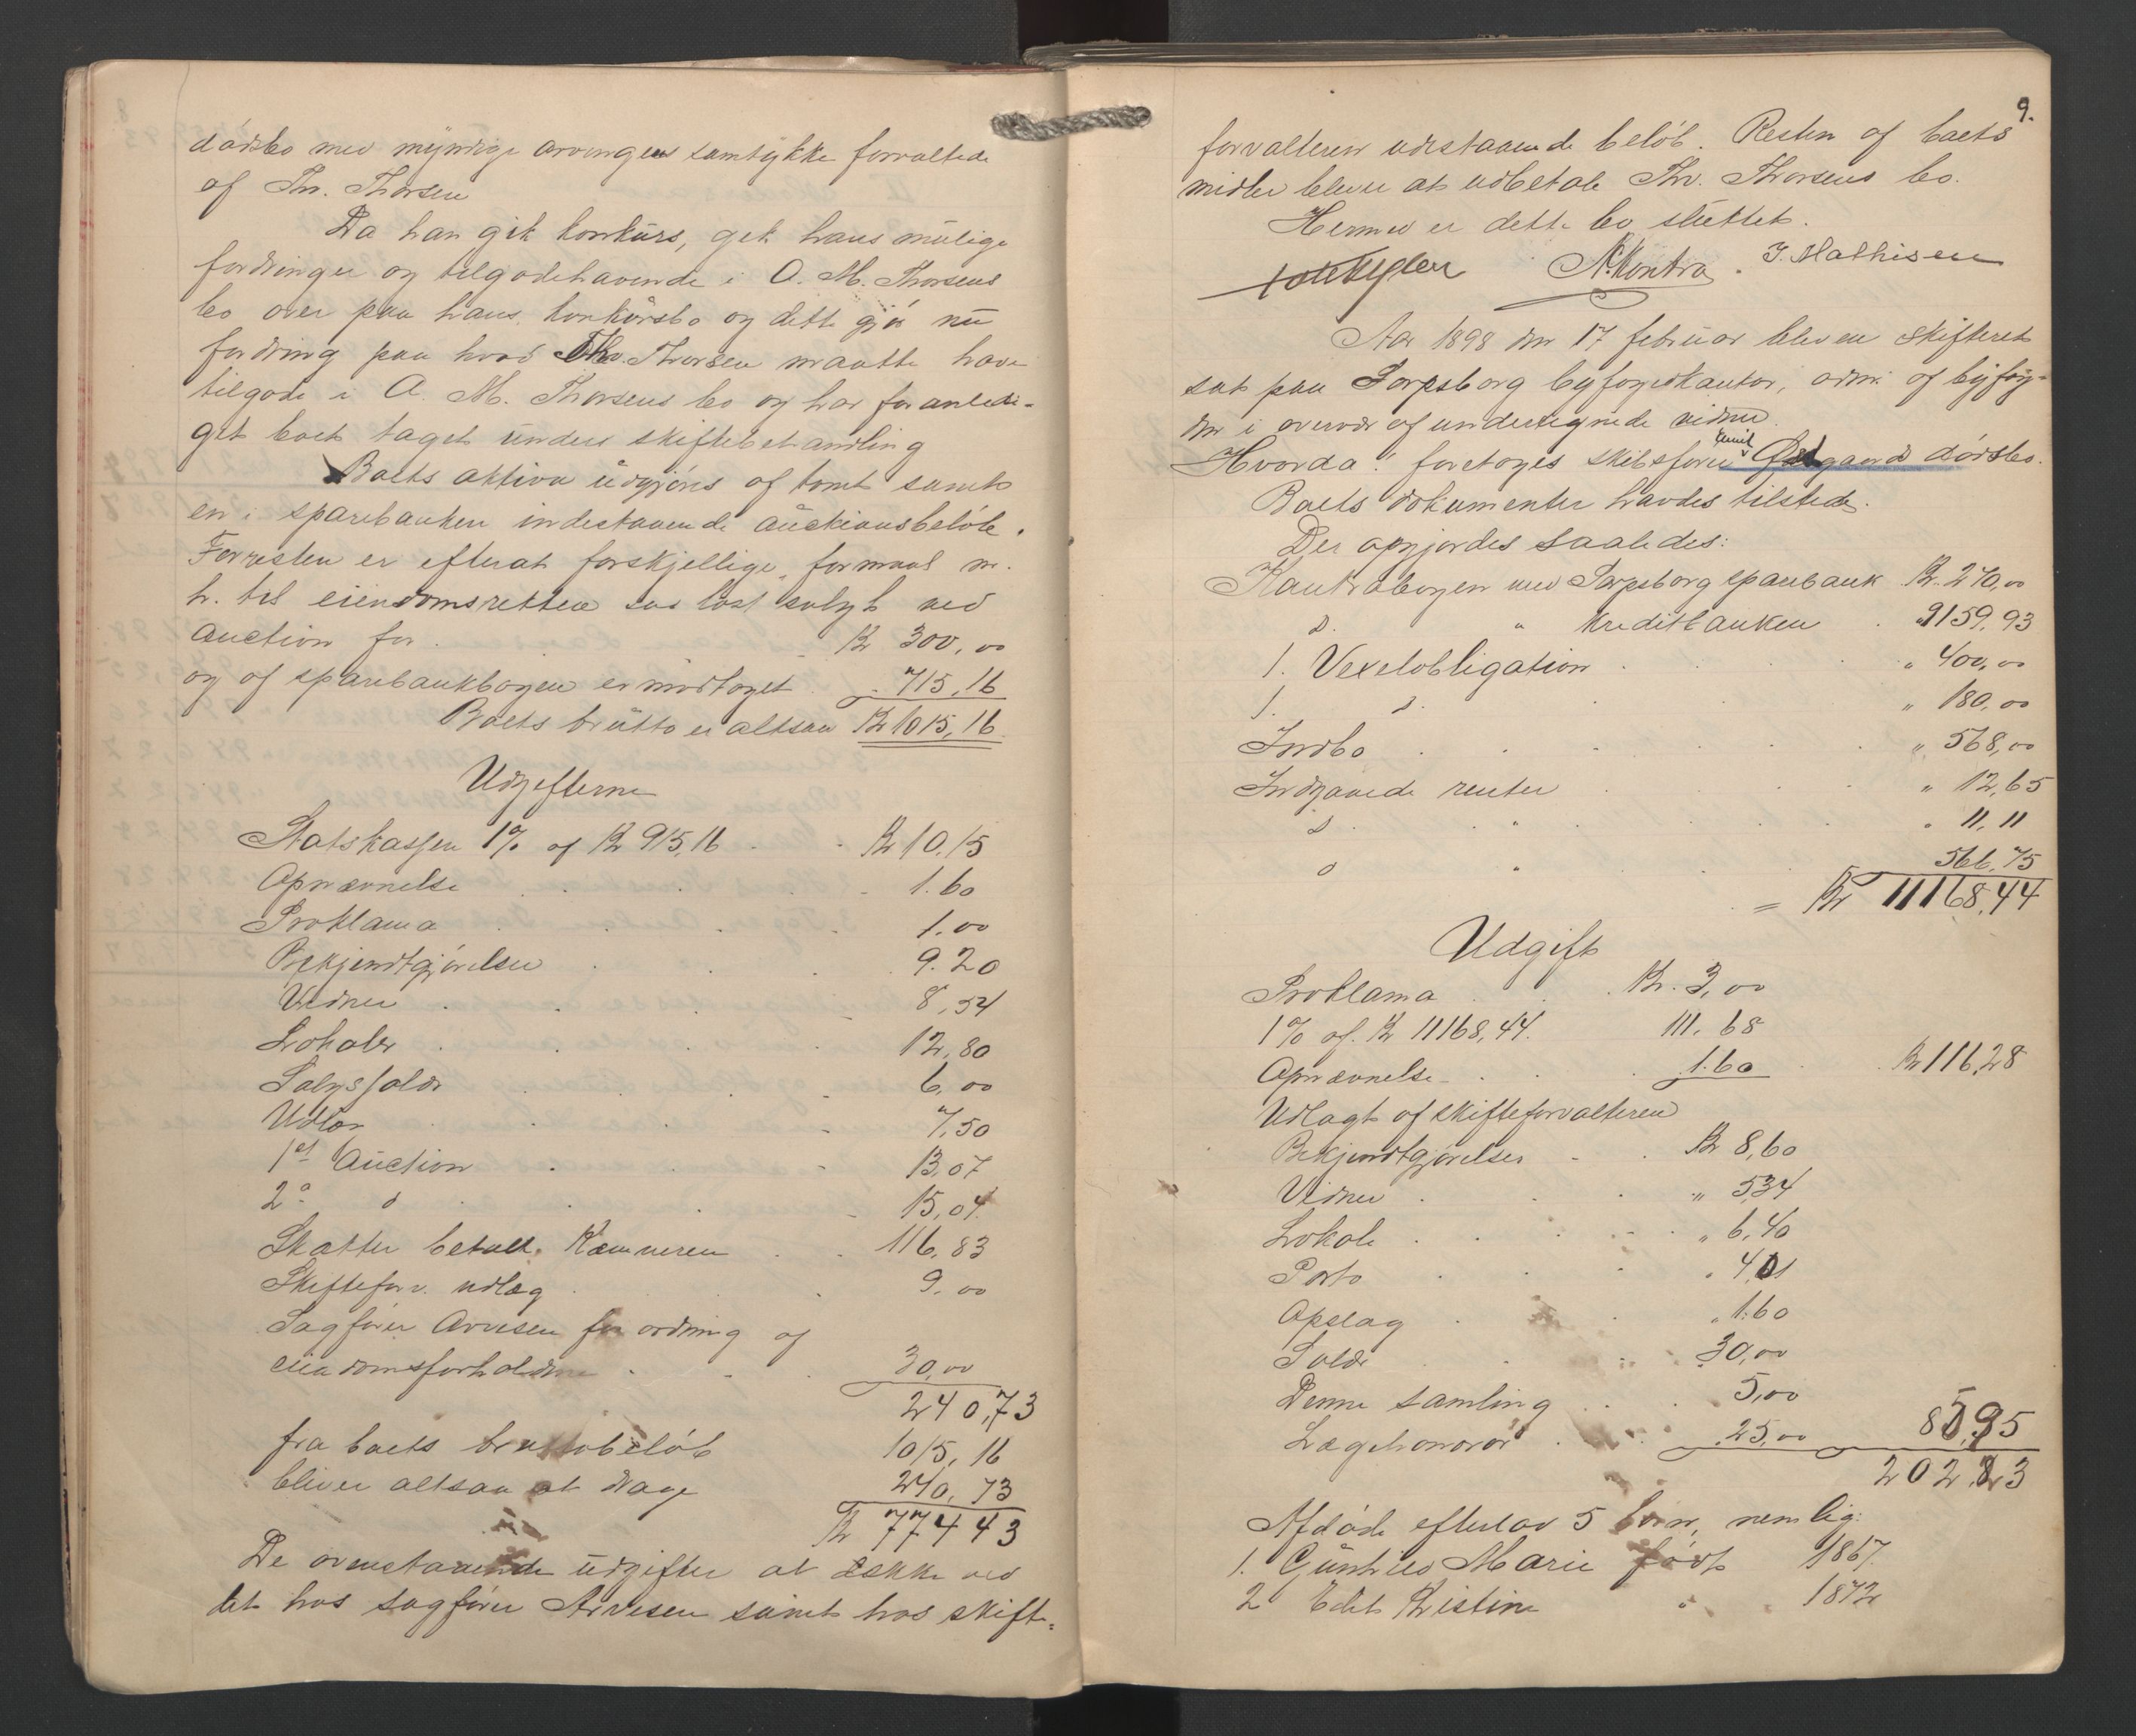 dødsbo med myndige arvingers samtykke forvaltede
af Th. Thorsen
Da han gik konkurs, gik hans mulige
fordringer og tilgodehavende i O. M. Thorsens
bo over paa hans konkursbo og dette gjør nu
fordring paa hvad Thv. Thorsen maatte have
tilgode i O. M. Thorsens bo og har foranledi-
get boet taget under skiftebehandling
Boets aktiva udgjøres af tomt samt
en i sparebanken indestaaende auctionsbeløb.
Forresten er efterat forskjellige formaal m.
h. til eiendomsretten var løst solgt ved
Auction for Kr 300,00
og af sparebankbogen er modtaget 715,16
Boets brutto er altsaa Kr 1015,16
Udgifterne
Statskassen 1% af Kr 915,16 Kr 10.15
Opnævnelse 1.60
Proklama 1.00
Bekjendtgjørelser 9.20
Vidner 8,54
Lokaler 12,80
Salgssalær 6,00
Udlæg 7,50
1ste Auction 13,07
2d d 15,04
Skatter betalt Kæmneren 116,83
Skifteforv. udlæg 9.00
Sagfører Arnesen for ordning af
eiendomsforholdene 30,00
240,73
fra boets bruttobeløb 1015,16
bliver altsaa at drage 240,73
Kr 774 43
De ovenstaaende udgifter at dække ved
det hos sagfører Arnesen samt hos skifte-
9.
forvalteren udestaaende beløb. Resten af boets
midler bliver at udbetale Thv. Thorsens bo.
Hermed er dette bo sluttet.
N. Kontra. J. Mathisen
Aar 1898 den 17 februar blev en skifteret
sat paa Sarpsborg byfogedkontor, adm. af byfog-
den i overvær af undertegnede vidner.
Hvorda: foretoges skibsfører Emil Østgaards dødsbo.
Boets dokumenter havdes tilstede.
Der opgjordes saaledes:
Kontrabogen med Sarpsborg sparebank Kr. 270,00
d. " Kreditbanken " 9159,93
1. Vexelobligation " 400,00
1. d. " 180,00
Indbo " 568,00
Indgaaede renter " 12,65
d " " 11,11
d " 566,75
= Kr 11168,44
Udgift
Proklama Kr. 3,00
1% af Kr 11168,44. 111.68
Opnævnelse 1.60 Kr 116,28
Udlagt af skifteforvalteren
Bekjendtgjørelser Kr 8,60
Vidner " 5,34
Lokale " 6,40
Porto " 4,01
Opslag " 1.60
Salær 30,00
Denne samling 5,00
Lægehonorar 25,00 85,95
202,23
Afdøde efterlod 5 børn, nemlig:
1. Gunhild Marie født 1867.
2 Edit Kristine " 1872